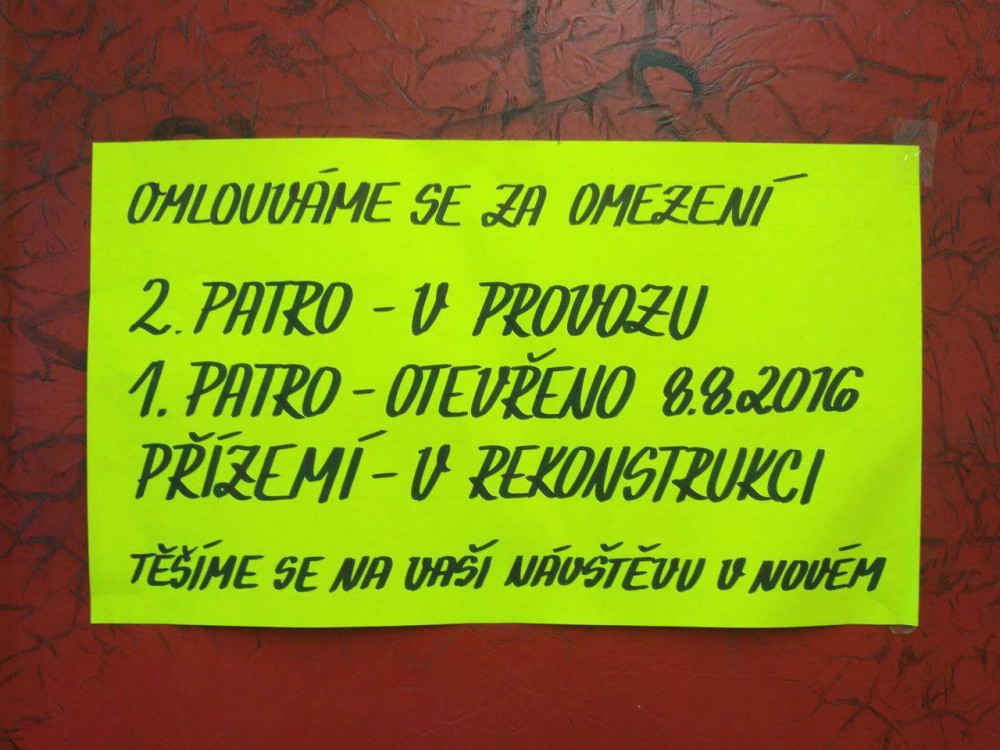 OMLOUVÁME SE ZA OMEZENÍ
2. PATRO - V PROVOZU
1. PATRO - OTEVŘENO 8.8.2016
PŘÍZEMÍ - V REKONSTRUKCI
TĚŠÍME SE NA VAŠÍ NÁVŠTĚVU V NOVÉM